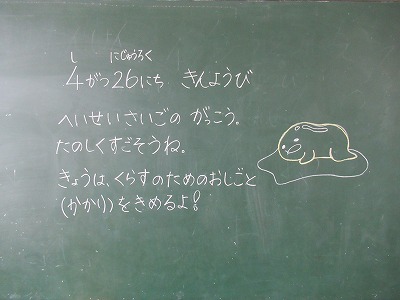 し にじゅうろく
4がつ26にち きんようび
へいせいさいごの がっこう。
たのしくすごそうね。
きょうは、くらすのためのおしごと
(かかり)をきめるよ!